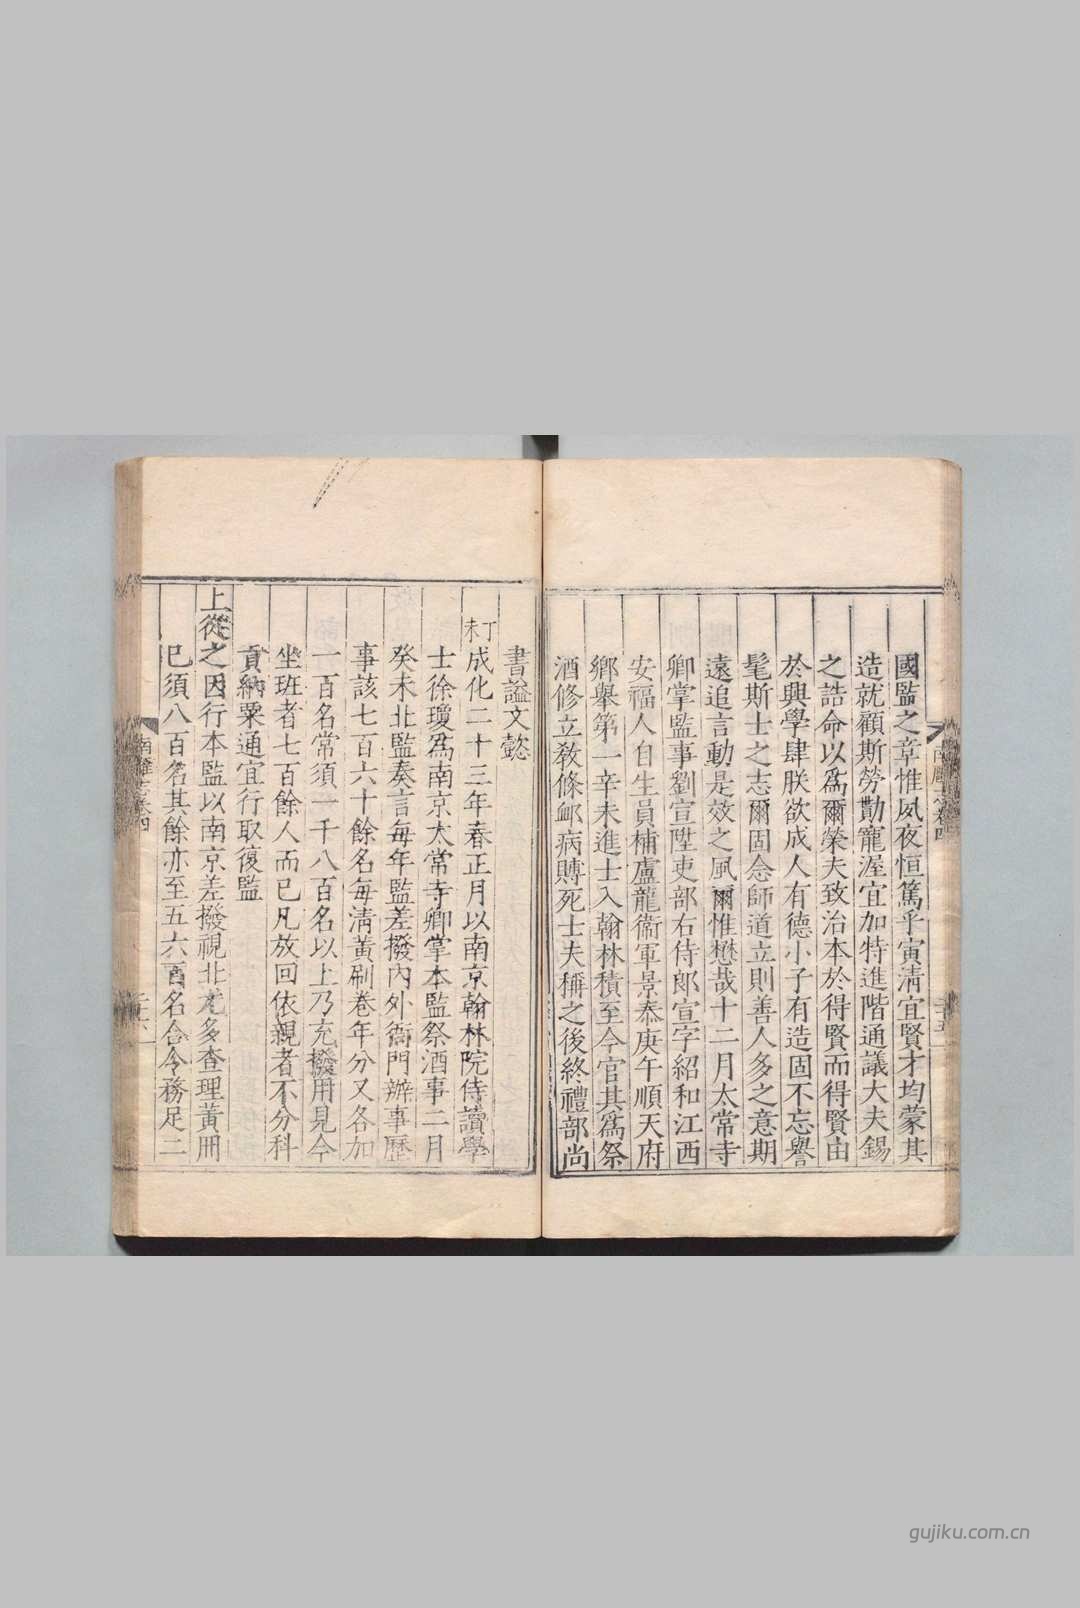 國監之章惟夙夜恒篤乎寅清宜賢才均蒙其
造就顧斯勞勩寵渥宜加特進階通議大夫錫
之誥命以爲爾榮夫致治本於得賢而得賢由
於興學肆朕欲成人有德小子有造固不忘譽
髦斯士之志爾固念師道立則善人多之意期
遠追言動是效之風爾惟懋哉十二月太常寺
卿掌監事劉宣陞吏部右侍郎宣字紹和江西
安福人自生員補盧龍衞軍景泰庚午順天府
鄉舉第一辛未進士入翰林積至今官其爲祭
酒修立教條䘏病賻死士夫稱之後終禮部尚
書諡文懿
丁未成化二十三年春正月以南京翰林院侍讀學
士徐瓊爲南京太常寺卿掌本監祭酒事二月
癸未北監奏言每年監差撥內外衙門辦事歷
事該七百六十餘名每清黃刷卷年分又各加
一百名常須一千八百名以上乃充撥用見今
坐班者七百餘人而已凡放回依親者不分科
貢納粟通宜行取復監
上從之因行本監以南京差撥視北尤多查理黃冊
已須八百名其餘亦至五六百名合令務足二
南雍志卷四
gujiku.com.cn